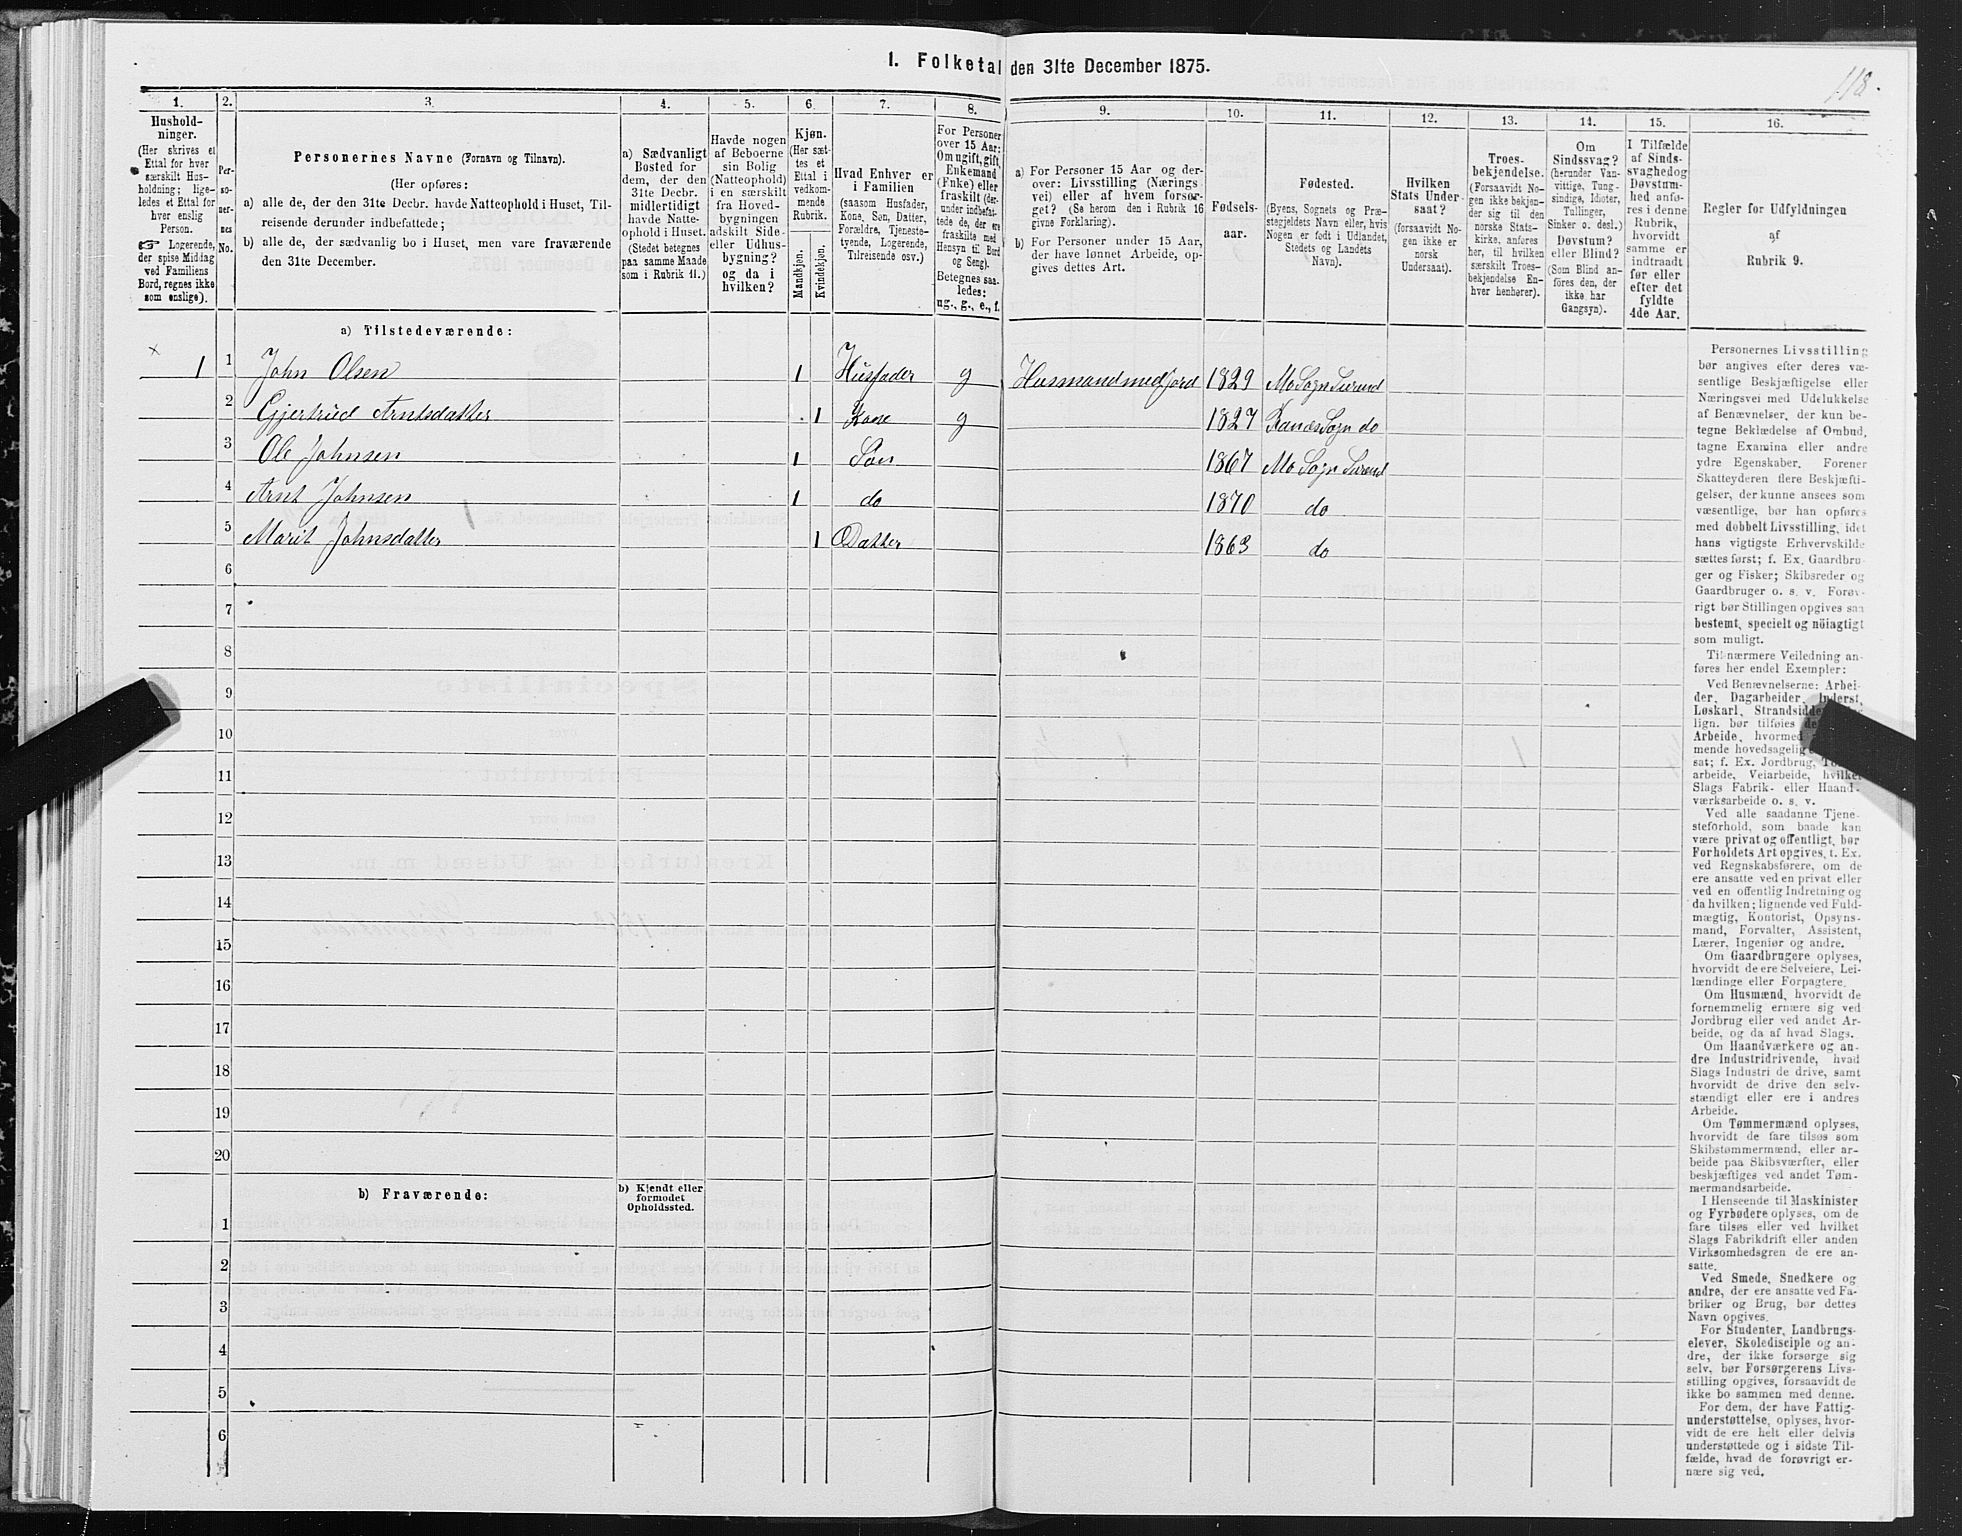 1. Folketal den 31te December 1875.
118.
1. 2. 3. 4. 5. 6. 7. 8. 9. 10. 11. 12. 13. 14. 15. 16.
Hushold-
ninger.
(Her skrives et
Ettal for hver
særskilt Hus-
holdning; lige-
ledes et Ettal for
hver enslig
Person.
☞ Logerende,
der spise Middag
ved Familiens
Bord, regnes ikke
som enslige).
Per-
so-
ner-
nes
No.
Personernes Navne (Fornavn og Tilnavn).
(Her opføres:
a) alle de, der den 31te Decbr. havde Natteophold i Huset, Til-
reisende derunder indbefattede;
b) alle de, der sædvanlig bo i Huset, men vare fraværende
den 31te December.
a) Sædvanligt
Bosted for
dem, der den
31te Decbr.
midlertidigt
havde Natte-
ophold i Huset.
(Stedet betegnes
paa samme Maade
som i Rubrik 11.)
Havde nogen
af Beboerne
sin Bolig
(Natteophold)
i en særskilt
fra Hoved-
bygningen
adskilt Side-
eller Udhus-
bygning?
og da i
hvilken?
Kjøn.
(Her sæt-
tes et
Ettal i
vedkom-
mende
Rubrik.
Mandkjøn.
Kvindekjøn.
Hvad Enhver er
i Familien
(saasom Husfader,
Kone, Søn, Datter,
Forældre, Tjeneste-
tyende, Logerende,
Tilreisende osv.)
For Personer
over 15 Aar:
Om ugift, gift,
Enkemand
(Enke) eller
fraskilt (der-
under indbefat-
tede de, der ere
fraskilte med
Hensyn til Bord
og Seng).
Betegnes saa-
ledes:
ug., g., e., f.
a) For Personer 15 Aar og der-
over: Livsstilling (Nærings-
vei) eller af hvem forsør-
get? (Se herom den i Rubrik 16
givne Forklaring).
b) For Personer under 15 Aar,
der have lønnet Arbeide, op-
gives dettes Art.
Fødsels-
aar.
Fødested.
(Byens, Sognets og Præ-
stegjeldets Navn eller, hvis
Nogen er født i Udlandet,
Stedets og Landets
Navn).
Hvilken
Stats Under-
saat?
(forsaavidt No-
gen ikke er
norsk
Undersaat).
Troes-
bekjendelse.
(Forsaavidt No-
gen ikke bekjen-
der sig til den
norske Stats-
kirke, anføres
her, til hvilken
særskilt Troes-
bekjendelse En-
hver henhører).
Om
Sindssvag?
(herunder Van-
vittige, Tung-
sindige, Idioter,
Tullinger,
Sinker o. desl.)
Døvstum?
eller Blind?
(Som Blind an-
føres den, der
ikke har
Gangsyn).
I Tilfælde
af Sinds-
svaghed og
Døvstum-
hed anfø-
res i denne
Rubrik,
hvorvidt
samme er
indtraadt
før eller
efter det
fyldte
4de Aar.
Regler for Udfyldningen
af
Rubrik 9.
a) Tilstedeværende:
1 1 John Olsen 1 Husfader g Husmand med jord 1829 Mo Sogn Surend
2 Gjertrud Arntsdatter 1 Kone g 1827 Ranæs Sogn do
3 Ole Johnsen 1 Søn 1867 Mo Sogn Surend
4 Arnt Johnsen 1 do 1870 do
5 Marit Johnsdatter 1 Datter 1863 do
6
7
8
9
10
11
12
13
14
15
16
17
18
19
20
b) Fraværende:
b) Kjendt eller
formodet
Opholdssted.
1
2
3
4
5
6
Personernes Livsstilling
bør angives efter deres væ-
sentlige Beskjæftigelse eller
Næringsvei med Udelukkelse
af Benævnelser, der kun be-
tegne Beklædelse af Ombud,
tagne Examina eller andre
ydre Egenskaber. Forener
Skatteyderen flere Beskjæfti-
gelser, der kunne ansees som
væsentlige, bør han opføres
med dobbelt Livsstilling, idet
hans vigtigste Erhvervskilde
sættes først; f. Ex. Gaardbru-
ger og Fisker; Skibsreder og
Gaardbruger o. s. v. Forøv-
rigt bør Stillingen opgives saa
bestemt, specielt og nöiagtigt
som muligt.
Til nærmere Veiledning an-
føres her endel Exempler:
Ved Benævnelserne: Arbei-
der, Dagarbeider, Inderst,
Løskarl, Strandsidder
lign. bør tilføies
Arbeide, hvormed
mende hovedsagelig
sat; f. Ex. Jordbrug,
arbeide, Veiarbeide, hvilket
Slags Fabrik- eller Haand-
værksarbeide o. s. v.
Ved alle saadanne Tjene-
steforhold, som baade kan
være privat og offentligt, bør
Forholdets Art opgives, t. Ex.
ved Regnskabsførere, om de
ere ansatte ved en privat eller
ved en offentlig Indretning og
da hvilken; lignende ved Fuld-
mægtig, Kontorist, Opsyns-
mand, Forvalter, Assistent,
Lærer, Ingeniør og andre.
Om Gaardbrugere oplyses,
hvorvidt de ere Selveiere, Lei-
lændinge eller Forpagtere.
Om Husmænd, hvorvidt de
fornemmelig ernære sig ved
Jordbrug eller ved andet Ar-
beide, og da af hvad Slags.
Om Haandværkere og an-
dre Industridrivende, hvad
Slags Industri de drive, samt
hvorvidt de drive den selv-
stændigt eller ere i andres
Arbeide.
Om Tømmermænd oplyses,
hvorvidt de fare tilsøs som
Skibstømmermænd, eller ar-
beide paa Skibsværfter, eller
beskjæftiges ved andet Tøm-
mermandsarbeide.
I Henseende til Maskinister
og Fyrbødere oplyses, om de
fare tilsøs eller ved hvilket
Slags Fabrikdrift eller anden
Virksomhedsgren de ere an-
satte.
Ved Smede, Snedkere og
andre, der ere ansatte ved Fa-
briker og Brug, bør dettes
Navn opgives.
For Studenter, Landbrugs-
elever, Skoledisciple og an-
dre, der ikke forsørge sig
selv, bør Forsørgerens Livs-
stilling opgives, forsaavidt de
ikke bo sammen med denne.
For dem, der have Fattig-
understøttelse, oplyses, hvor-
vidt de ere helt eller delvis
understøttede og i sidste Til-
fælde, hvad de forøvrigt er-
nære sig ved.